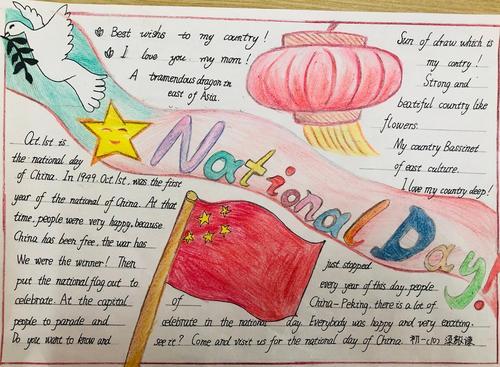 Best wishes to my country!
I love you my mom!
A tramendous dragon in
east of Asia.
Sun of draw which is
my contry!
Strong and
beatiful country like
flowers.
My country Bassenet
of east culture.
I love my country deep!
National Day!
Oct. 1st is
the national day
of China. In 1949. Oct. 1st. was the first
year of the national of China. At that
time, people were very happy. because
China has been free. the war has
We were the winner! Then
put the national flag out to
celebrate. At the capital
people to parade and
Do you want to know and
just stopped.
every year of this day. people
of China-Peking. there is a lot of
celebrate in the national day. Everybody was happy and very exciting.
see it? Come and visit us for the national day of China. 初一(10)